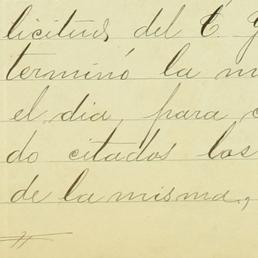 licitud, del C. G
terminó la m
el dia, para c
do citados los
de la misma,